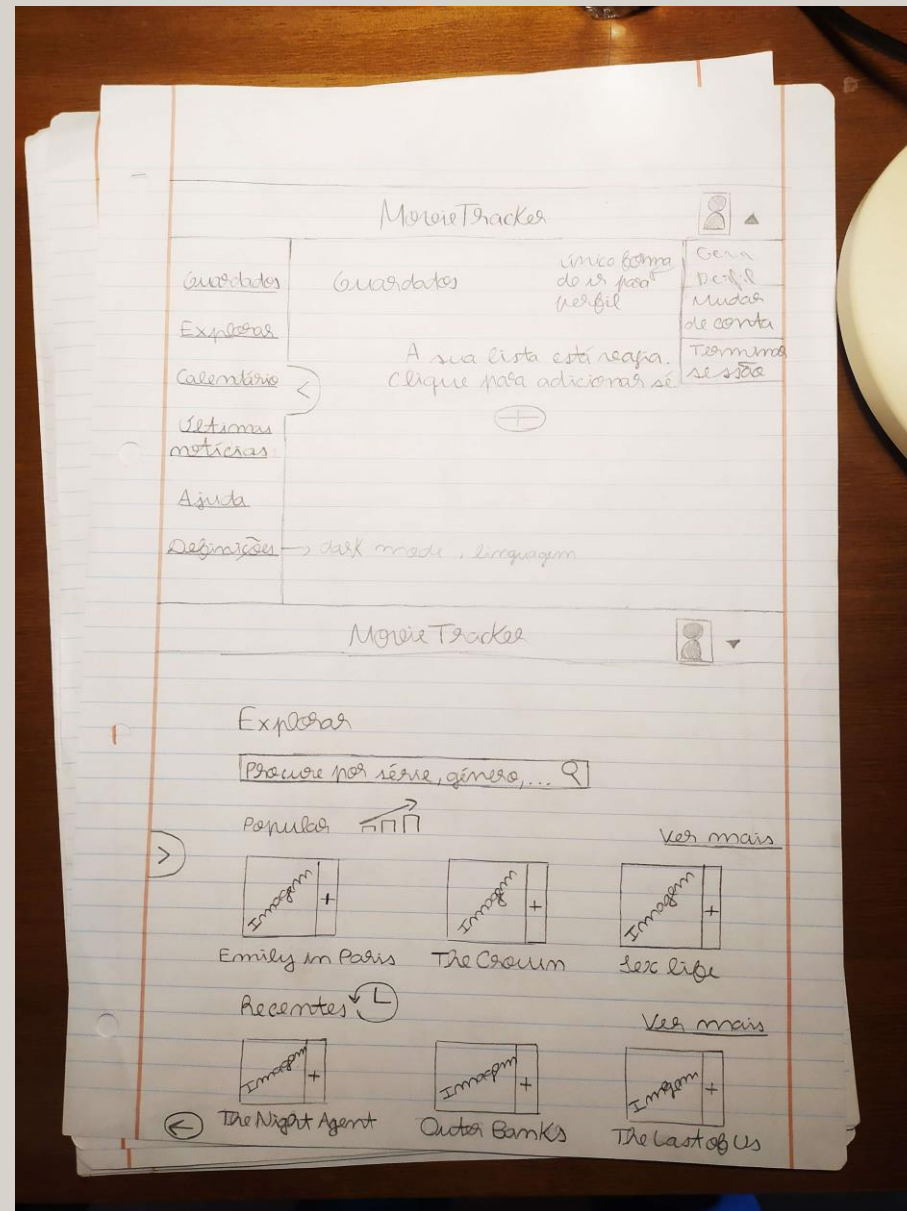 MovieTracker
Guardados
Explorar
Calendário
Últimas
notícias
Ajuda
Definições → dark mode, linguagem
Guardados
único forma
de ir para
perfil
Mudar
de conta
Terminar
sessão
A sua lista está
Clique para adicionar
MovieTracker
Explorar
Procure por série, género,...
Popular
Ver mais
Imagem + Imagem + Imagem +
Emily in Paris The Crown Sex life
Recentes
Ver mais
Imagem + Imagem + Imagem +
The Night Agent Outer Banks The Last of Us